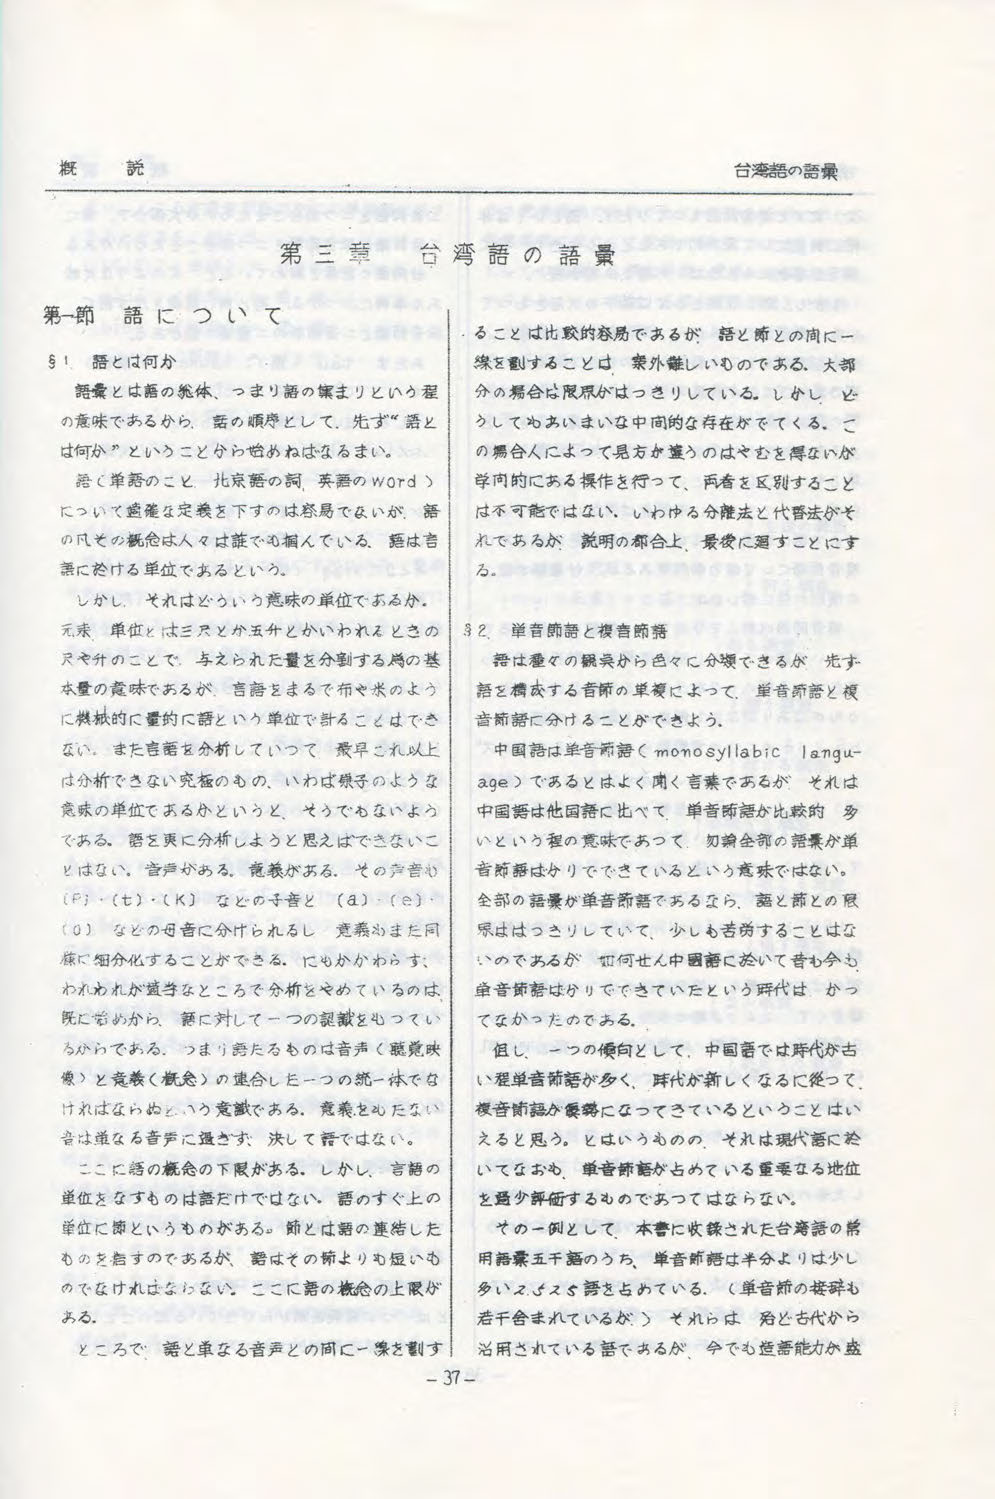 概　説
台湾語の語彙
第三章　台湾語の語彙
第一節　語について
§1.　語とは何か
語彙とは語の総体、つまり語の集まりという程
の意味であるから、話の順序として、先ず“語と
は何か”ということから始めねばなるまい。
語（単語のこと、北京語の詞、英語のword）
について適確な定義を下すのは容易でないが、語
の凡その概念は人々は誰でも掴んでいる、語は言
語に於ける単位であるという。
しかし、それはどういう意味の単位であるか。
元来、単位とは三尺とか五升とかいわれるときの
尺や升のことで、与えられた量を分割する為の基
本量の意味であるが、言語をまるで布や米のよう
に機械的に量的に語という単位で計ることはでき
ない。また言語を分析していつて、最早これ以上
は分析できない究極のもの、いわば原子のような
意味の単位であるかというと、そうでもないよう
である。語を更に分析しようと思えばできないこ
とはない。音声がある。意義がある。その声音も
（P）・（t）・（K）などの子音と（a）・（e）・
（o）などの母音に分けられるし、意義もまた同
様に細分化することができる。にもかかわらず、
われわれが適当なところで分析をやめているのは、
既に始めから、語に対して一つの認識をもつてい
るからである。つまり語たるものは音声（聴覚映
像）と意義（概念）の連合した一つの統一体でな
ければならぬという意識である。意義をもたない
音は単なる音声に過ぎず、決して語ではない。
ここに語の概念の下限がある。しかし、言語の
単位をなすものは語だけではない。語のすぐ上の
単位に節というものがある。節とは語の連結した
ものを指すのであるが、語はその節よりも短いも
のでなければならない。ここに語の概念の上限が
ある。
ところで、語と単なる音声との間に一線を劃す
ることは比較的容易であるが、語と節との間に一
線を劃することは、案外難しいものである。大部
分の場合は限界がはつきりしている。しかし、ど
うしてもあいまいな中間的な存在がでてくる。こ
の場合人によって見方が違うのはやむを得ないが
学問的にある操作を行って、両者を区別すること
は不可能ではない、いわゆる分離法と代替法がそ
れであるが、説明の都合上、最後に廻すことにす
る。
§2.　単音節語と複音節語
語は種々の観点から色々に分類できるが、先ず
語を構成する音節の単複によって、単音節語と複
音節語に分けることができよう。
中国語は単音節語（monosyllabic langu-
age）であるとはよく聞く言葉であるが、それは
中国語は他国語に比べて、単音節語が比較的　多
いという程の意味であつて、勿論全部の語彙が単
音節語ばかりでできているという意味ではない。
全部の語彙が単音節語であるなら、語と節との限
界ははっきりしていて、少しも苦労することはな
いのであるが、如何せん中国語に於いて昔も今も
単音節語ばかりでできていたという時代は、かっ
てなかったのである。
但し、一つの傾向として、中国語では時代が古
い程単音節語が多く、時代が新しくなるに従って、
複音節語が優勢になってきているということはい
えると思う。とはいうものの、それは現代語に於
いてなおも、単音節語が占めている重要なる地位
を過少評価するものであつてはならない。
その一例として、本書に收録された台湾語の常
用語彙五千語のうち、単音節語は半分よりは少し
多い2.525語を占めている。（単音節の接辞も
若干含まれているが）それらは、殆ど古代から
沿用されている語であるが、今でも造語能力が盛
－37－